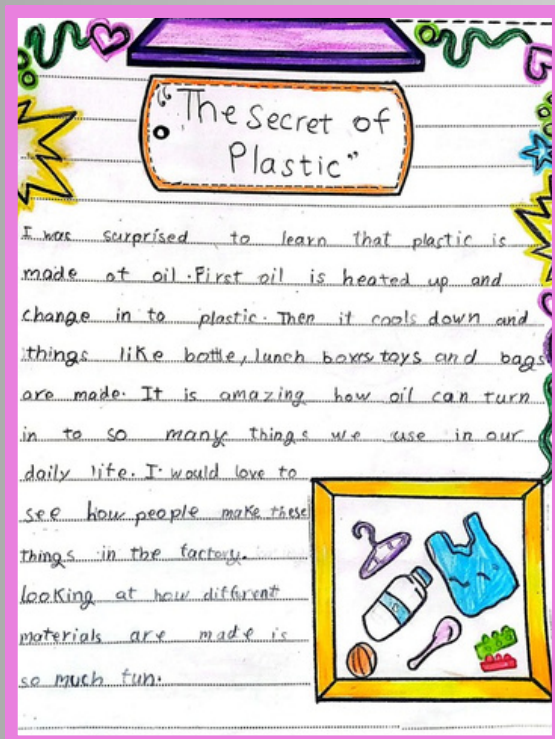 "The secret of
Plastic"
I was surprised to learn that plastic is
made of oil. First oil is heated up and
change in to plastic. Then it cools down and
things like bottle, lunch boxes toys and bags
are made. It is amazing how oil can turn
in to so many things we use in our
daily life. I would love to
see how people make these
things in the factory.
looking at how different
materials are made is
so much fun.